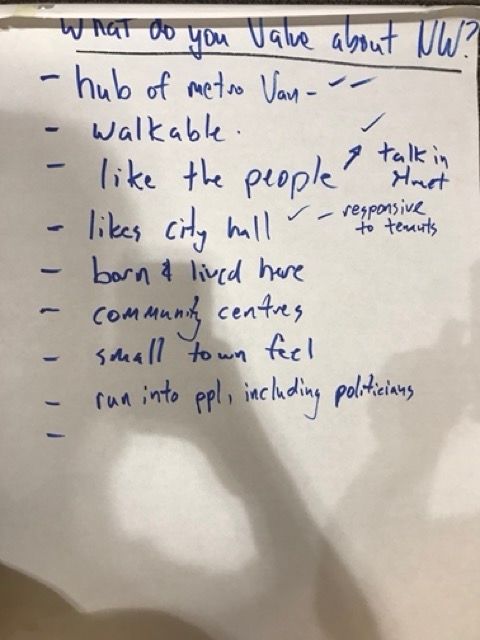 What do you Value about NW?
- hub of metro Van - ✓ ✓
- walkable.
- like the people ↗ ✓ talk in street
- likes city hall ✓ - responsive to tenants
- born & lived here
- community centres
- small town feel
- run into ppl, including politicians
-